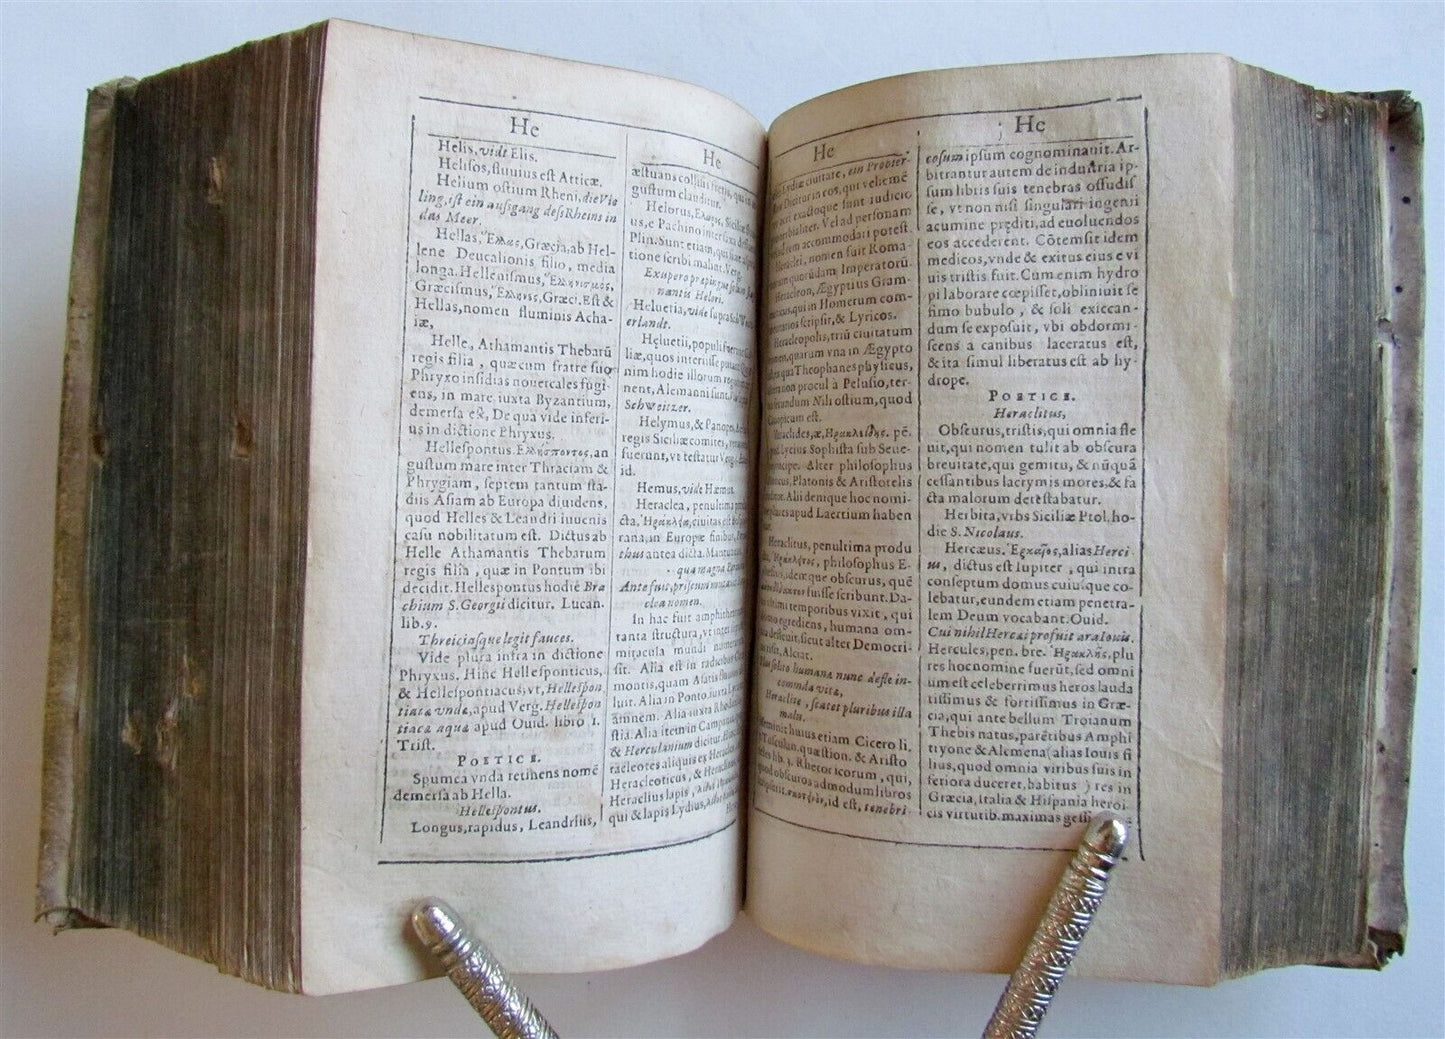 He
Helis, vide Elis.
Helisos, fluvius est Atticæ.
Helium ostium Rheni, die Vie
ling, ist ein aussgang dess Rheins in
das Meer.
Hellas, Ἕλλας, Græcia, ab Hel-
lene Deucalionis filio, media
longa. Hellenismus, Ἕλληνισμος,
Græcismus, Ἕλληνες, Græci. Est &
Hellas, nomen fluminis Acha-
iæ,
Helle, Athamantis Thebarū
regis filia, quæ cum fratre suo
Phryxo insidias nouercales fugi-
ens, in mare iuxta Byzantium,
demersa est. De qua vide inferi-
us in dictione Phryxus.
Hellespontus. Ἑλλήσποντος, an
gustum mare inter Thraciam &
Phrygiam, septem tantum sta-
diis Asiam ab Europa diuidens,
quod Helles & Leandri iuuenis
casu nobilitatum est. Dictus ab
Helle Athamantis Thebarum
regis filia, quæ in Pontum ibi
decidit. Hellespontus hodie Bra
chium S. Georgii dicitur. Lucan.
lib. 9.
Threiciasque legit fauces.
Vide plura infra in dictione
Phryxus. Hinc Hellesponticus,
& Hellespontiacus; vt, Hellespon
tiaca vnda, apud Verg. Hellespon
tiaca aqua apud Ouid. libro 1.
Trist.
POETICE.
Spumea vnda retinens nomē
demersa ab Hella.
Hellespontus.
Longus, rapidus, Leandrius,
He
æstuans collisis fretis, qui in
gustum clauditur.
Helorus, Ἕλωρος, Siciliæ
us, e Pachino inter saxa
Plin. Sunt etiam, qui
tione scribi malint. Verg.
Exupero præpingue solum
nantis Helori.
Heluetia, vide supra Sch Weitz
erlandt.
Heluetii, populi fuerunt
liæ, quos interiisse putant
nim hodie illorum regio
nent, Alemanni sunt
Schweitzer.
Helymus, & Panopes,
regis Siciliæ comites,
fuerunt, vt testatur Verg.
id.
Hemus, vide Hæmus.
Heraclea, penultima
cta, Ἡράκλεα, ciuitas est
rana, in Europæ finibus,
thus antea dicta. Mantuan.
qua magna
Ante fuit, priscum
clea nomen.
In hac fuit amphitheatrum
tanta structura, vt inter
miracula mundi numerata
sit. Alia est in radicibus
montis, quam Asiatis fluuius
luit. Alia in Ponto, iuxta
amnem. Alia iuxta Rhodanum
stiā. Alia item in Campania
& Herculanium dicitur,
racleotes aliquis ex Heraclea
Heracleoticus, & Heraclius
Heraclius lapis,
qui & lapis Lydius,
He
Lydiæ ciuitate, ein Probier-
eos, qui velit mē
exactoque sunt iudicio
Vel ad personam
accommodari potest.
Heraclei, nomen fuit Roma-
quorūdam Imperatorū.
Heracleon, Ægyptius Gram-
maticus, qui in Homerum com-
mentarios scripsit, & Lyricos.
Heracleopolis, triū ciuitatum
nomen, quarum vna in Ægypto
ex qua Theophanes physicus,
altera non procul à Pelusio, ter-
secundum Nili ostium, quod
Canopicum est.
Heraclides, æ, Ἡρακλείδης. pē.
Lycius Sophista sub Seue-
principe. Alter philosophus
Ponticus, Platonis & Aristotelis
auditor. Alii denique hoc nomi-
ne plures apud Laertium haben
tur.
Heraclitus, penultima produ
cta, Ἡράκλητος, philosophus E-
phesius, idemque obscurus, quē
fuisse scribunt. Da-
temporibus vixit, qui
egrediens, humana om-
nia defleuit, sicut alter Democri-
tus risit, Alciat.
Plus solito humanæ nunc defle in-
commoda vitæ,
Heraclite, scatet pluribus illa
malis.
Meminit huius etiam Cicero li.
5. Tusculan. quæstion. & Aristo
teles lib. 3. Rhetoricorum, qui,
quod obscuros admodum libros
scripserit, σκοτεινὸς, id est, tenebri-
He
cosum ipsum cognominauit. Ar-
bitrantur autem de industria ip-
sum libris suis tenebras offudis
se, vt non nisi singulari ingenii
acumine prediti, ad euoluendos
eos accederent. Cōtemsit idem
medicos, vnde & exitus eius e vi
uis tristis fuit. Cum enim hydro
pi laborare cœpisset, obliniuit se
fimo bubulo, & soli exiccan-
dum se exposuit, vbi obdormi-
scens a canibus laceratus est,
& ita simul liberatus est ab hy-
drope.
POETICE.
Heraclitus,
Obscurus, tristis, qui omnia fle
uit, qui nomen tulit ab obscura
breuitate, qui gemitu, & nūquā
cessantibus lacrymis mores, & fa
cta malorum detestabatur.
Herbita, vrbs Siciliæ Ptol. ho-
die S. Nicolaus.
Hercæus. Ἑρκαῖος, alias Herci
us, dictus est Iupiter, qui intra
conseptum domus cuiusque co-
lebatur, eundem etiam penetra-
lem Deum vocabant. Ouid.
Cui nihil Hercæi profuit ara Iouis.
Hercules, pen. bre. Ἡρακλῆς, plu
res hoc nomine fuerūt, sed omni
um est celeberrimus heros lauda
tissimus & fortissimus in Græ-
cia, qui ante bellum Troianum
Thebis natus, parētibus Amphi
tryone & Alcmena (alias Iouis fi
lius, quod omnia viribus suis in
feriora duceret, habitus ) res in
Græcia, Italia & Hispania heroi
cis virtutib. maximas